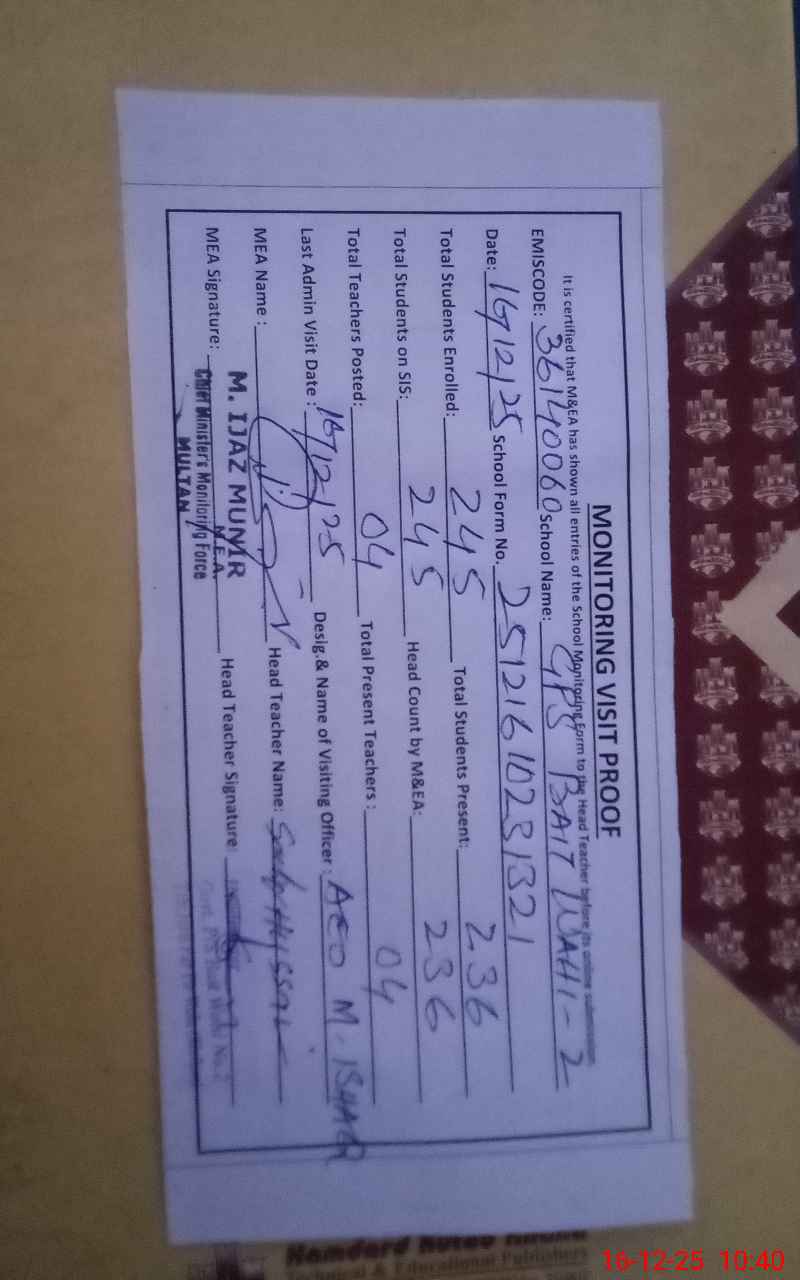 MONITORING VISIT PROOF
It is certified that M&EA has shown all entries of the School Monitoring Form to the Head Teacher before its online submission.
EMISCODE: 36140060 School Name: GPS BAIT WAHI-2
Date: 16/12/25 School Form No. 25121610231321
Total Students Enrolled: 245 Total Students Present: 236
Total Students on SIS: 245 Head Count by M&EA: 236
Total Teachers Posted: 04 Total Present Teachers : 04
Last Admin Visit Date : 16/12/25 Desig.& Name of Visiting Officer : AEO M. ISHAQ
MEA Name : Head Teacher Name:
MEA Signature: Head Teacher Signature
M. IJAZ MUNIR
M.E.A.
Chief Minister's Monitoring Force
MULTAN
& Educational Publishers
16-12-25 10:40